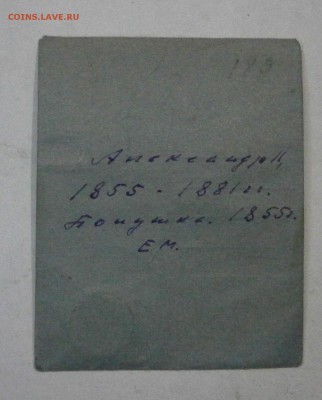 COINS.LAVE.RU
193
Александр II,
1855 - 1881 гг.
Полушка. 1855г.
ЕМ.